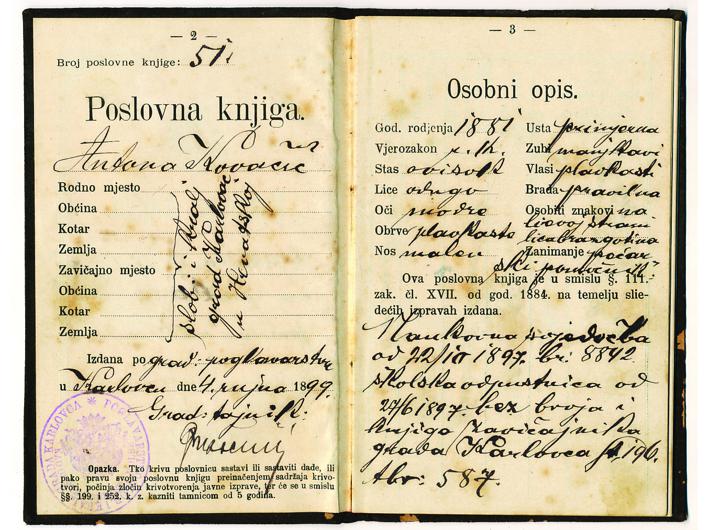 — 2 —
Broj poslovne knjige: 51
Poslovna knjiga.
Antona Kovačić
Rodno mjesto
Općina
Kotar
Zemlja
Zavičajno mjesto
Općina
Kotar
Zemlja
slob: i kralj
grad Karlovac
u Hrvatskoj
Izdana po grad: poglavarstvu
u Karlovcu dne 4. rujna 1899.
Grad: tajnik:
Opazka. Tko krivu poslovnicu sastavi ili sastaviti dade, ili
pako pravu svoju poslovnu knjigu preinačenjem sadržaja krivo-
tvori, počinja zločin krivotvorenja javne izprave, ter će se u smislu
§§. 199. i 252. k. z. kazniti tamnicom od 5 godina.
— 3 —
Osobni opis.
God. rod;enja 1881
Vjerozakon r. k.
Stas ovisok
Lice odugo
Oči modre
Obrve plavkaste
Nos malen
Usta primjerna
Zubi manjkavi
Vlasi plavkasti
Brada pravilna
Osobiti znakovi na
lievoj strani
lica brazgotina
Zanimanje pekar
ski pomoćnik
Ova poslovna knjiga je u smislu §. 111.
zak. čl. XVII. od god. 1884. na temelju slie-
dećih izpravah izdana.
Naukovna svjedočba
od 22/10 1897. br: 8842.
školska odpustnica od
27/6 1897. bez broja i
knjiga zavičajnika
grada Karlovca st. 196.
tbr: 587.